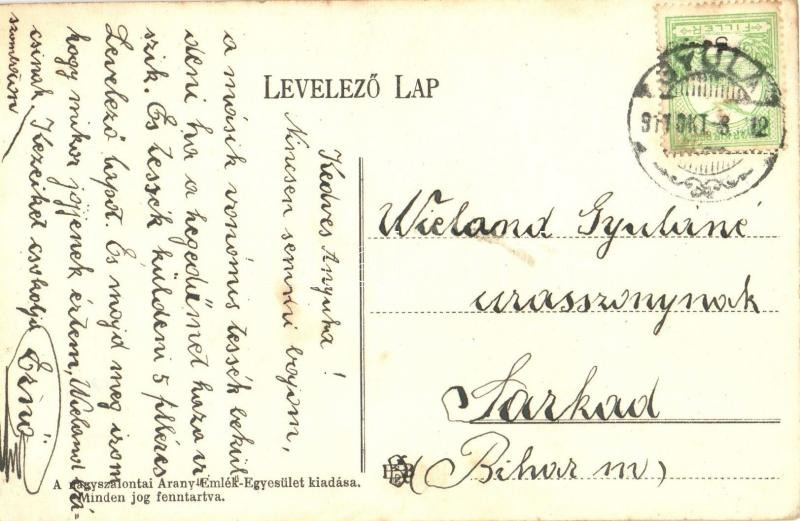 LEVELEZŐ LAP
FILLÉR
5
GYULA
911 OKT. 8. 12
Kedves Anyuka!
Nincsen semmi bajom,
a másik vonómis tessék bekül-
deni ha a hegedümet haza vi
szik. És tessék küldeni 5 filléres
Levelező lapot. És majd meg irom
hogy mikor jöjjenek értem, Wieland bá-
csinak. Kezeiket csokolja
szombatim
Ernő
Wieland Gyuláné
urasszonynak
Sarkad
(Bihar m)
A nagyszalontai Arany-Emlék-Egyesület kiadása.
Minden jog fenntartva.